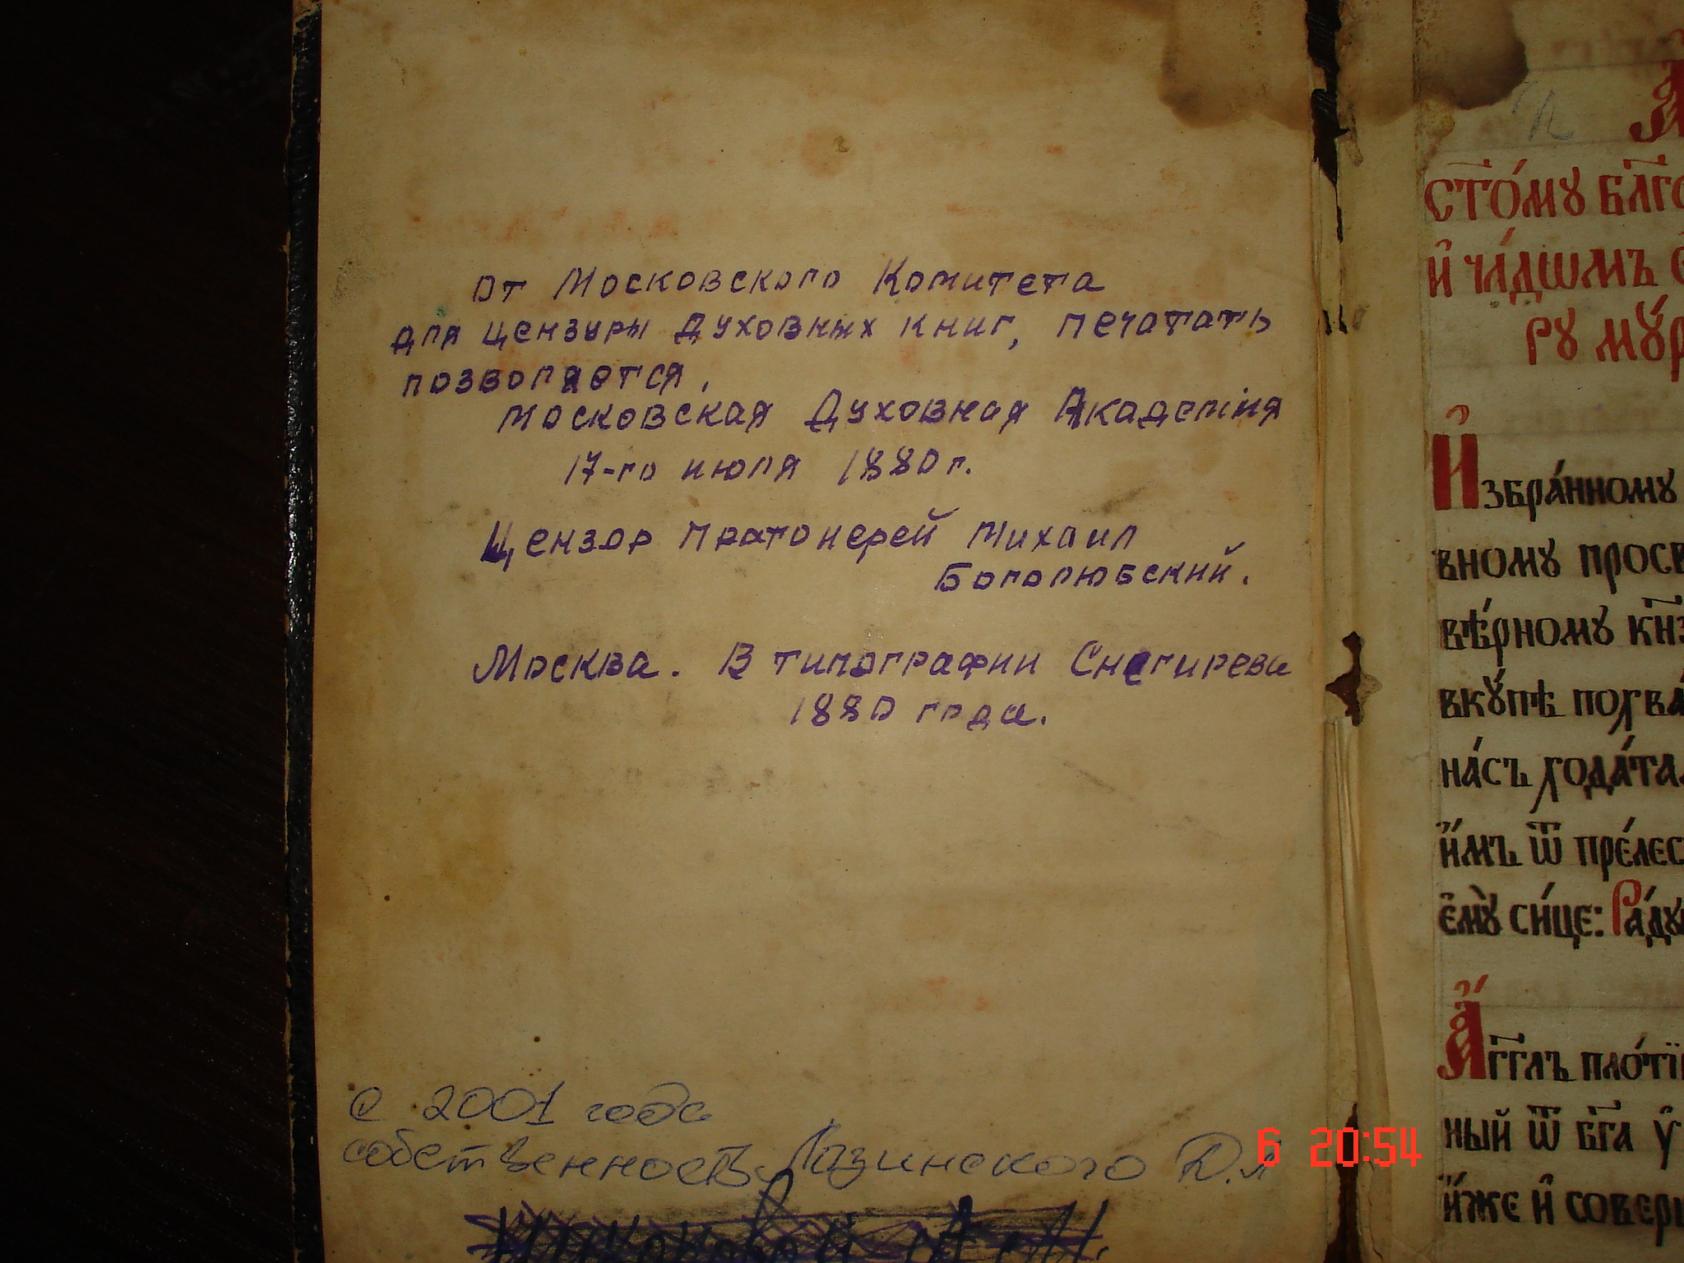 от Московского Комитета
для цензуры Духовных книг, печатать
позволяется.
Московская Духовная Академiия
17-го июля 1880 г.
Цензор Протоиерей Михаил
Боголюбский.
Москва. В типографии Снегирева
1880 года.
С 2001 года
собственность Лазинского Д.А
6 20:54
стⷪ҇о́мꙋ бл҃го
и҆ ча́дѡмъ
рꙋ мꙋ́р
И҆збра́нному
вному просв
вѣ́рному кн҃з
вкꙋ́пѣ похва
на́съ хода́та
и҆́мъ ѿ пре́лес
є҆мꙋ̀ си́це: Ра́дꙋ
А҆́гг҃лъ пло́тїю
ный ѿ бг҃а ꙋ҆
и҆́же и҆ соверш